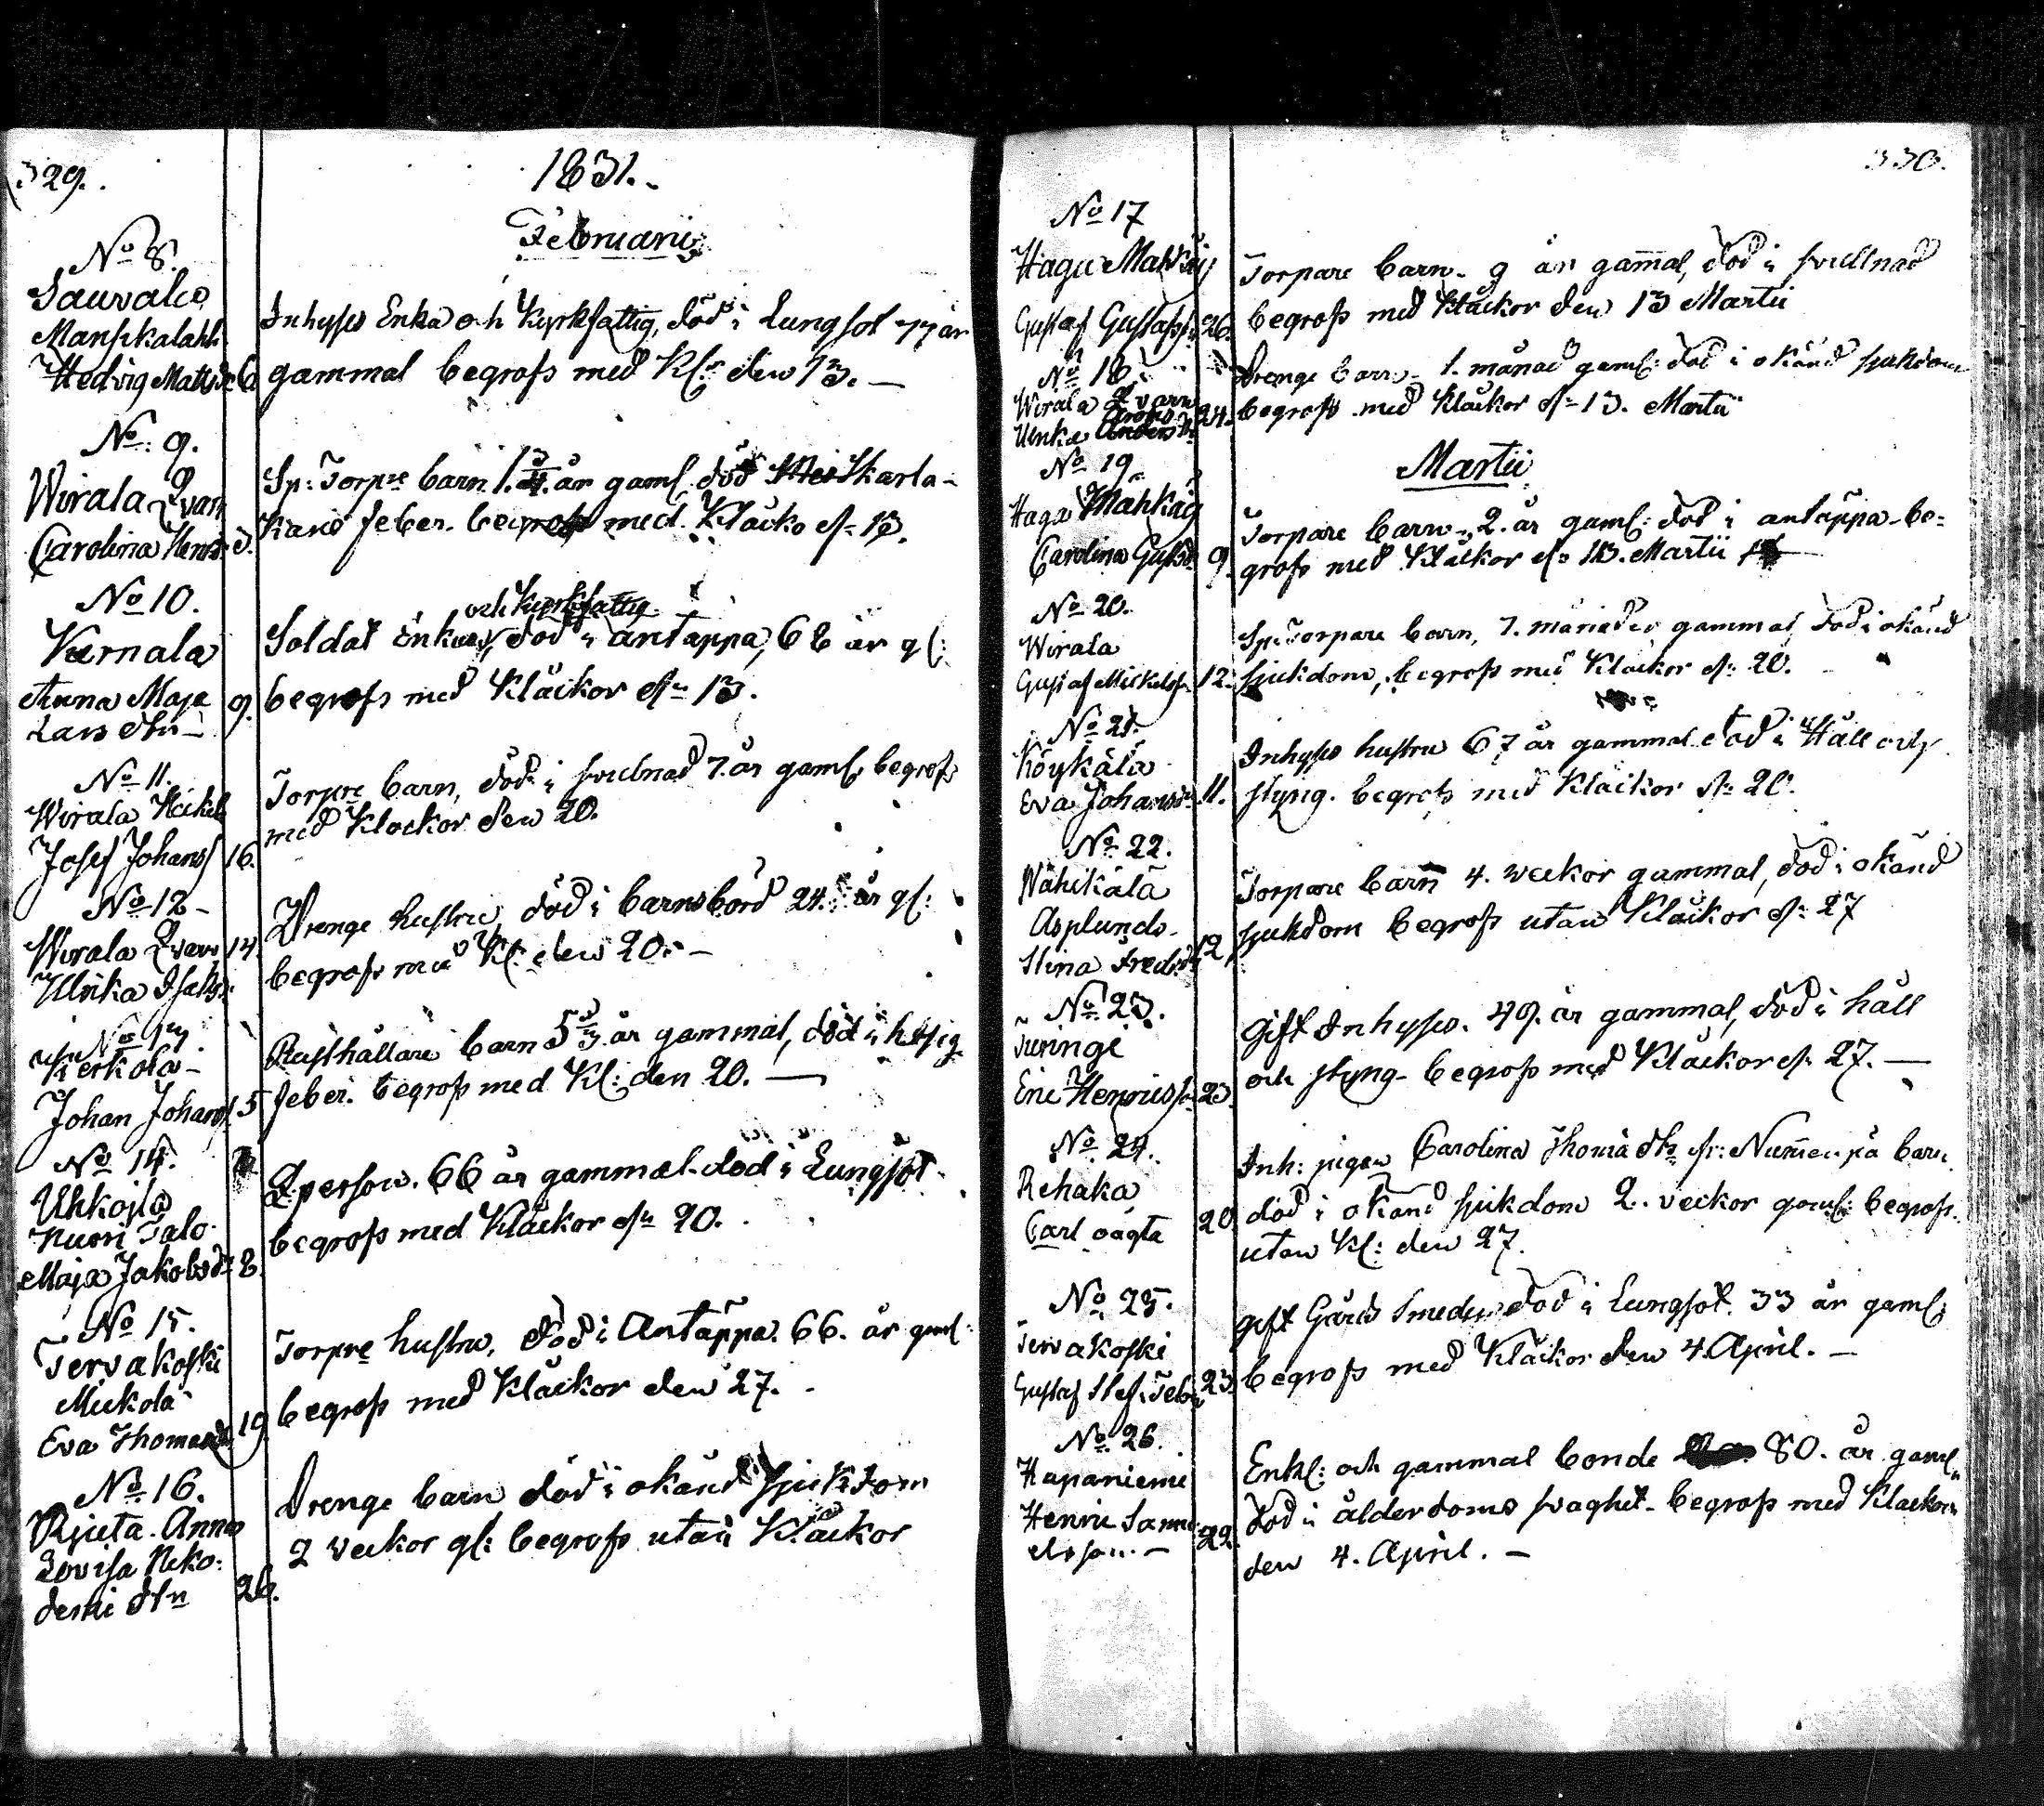 329.
1831.
Februarii
No 8.
Sauvala
Manskalaht
Hedvig Mattsdr 6
Inhyses Enka och Kyrkfattig, död i Lungsot 77 år
gammal begrofs med Kl:r den 13. —
No: 9.
Wirala Qvarn
Carolina Henr: d.
Sp: Torpre barn 1. 3/4. år gaml, död Skarla-
kans feber. begrofs med Klacko d: 13.
No 10.
Kernala
Anna Maja
Lars dtr — 9.
och Kyrkfattig
Soldat Enka, död i antäppa, 68 år gl:
begrofs med Kläckor dn 13.
No 11.
Wirala Heikel
Josef Johans 16.
Torpre barn, död i svulnad 7. år gaml, begrofs
med Klockor den 20.
No 12 -
Wirala Qvarn 14.
Ulrika Isaks:
Drenge hustru, död i barnsbörd 24. år gl:
begrofs med Kl: den 20. —
No 13.
Kerkola -
Johan Johans. 5
Rusthållare barn 5 år gammal, död i hetsig
feber. begrofs med Kl: den 20. —
No 14.
Uhkoila
Nuori Talo
Maja Jakobsdr 8.
Qperson. 66 år gammal död i Lungsot.
begrofs med Kläckor dn 20.
No 15.
Tervakoski
Mickola
Eva Thomasdr 19.
Torpre hustru, död i Antäppa. 66. år gaml:
begrofs med Kläckor den 27.
No 16.
Anna
Lovisa Niko:
demi dtr 26.
Drenge barn död i okänd Sjukdom
2 veckor gl: begrofs utan Kläckor
330.
No 17
Haga Mahkig
Gustaf Gustafss: 26.
Torpare barn. 9 år gammal, död i svullnad
begrofs med Kläckor den 13 Martii
No 18.
Wirala Qvarn
Anders 24.
Drenge barn - 1. månad gaml: död i okänd sjukdom
begrofs med Kläckor d: 13. Martii
Martii
No 19
Haga Mahkig
Carolina Gustd: 9.
Torpare barn, 2. år gaml: död i antäppa - be=
grofs med Kläckor dn 13. Martii
No 20.
Wirala
Gustaf Mickels. 12.
Sp: Torpare barn, 7. månader gammal död i okänd
sjukdom, begrofs med Kläckor d: 20.
No 21.
Köykälä
Eva Johansdr 11.
Inhyses hustru 67 år gammal död i Håll och
styng. begrofs med Kläckor d: 20.
No 22.
Wähikälä
Asplunds
Stina Fredr: 12
Torpare barn 4. veckor gammal, död i okänd
sjukdom begrofs utan Kläckor d: 27
No 23.
Turinge
Eric Henriss: 23.
Gift Inhyses. 49. år gammal, död i håll
och styng - begrofs med Kläckor d: 27. —
No 24.
Rehaka
Carl oägta 20.
Inh: pigan Carolina Thomä dtr fr: Nummenpä barn
död i okänd sjukdom 2. veckor gaml: begrofs
utan Kl: den 27.
No 25.
Tervakoski
Gustaf 23.
gift Gårds Smeden död i Lungsot. 33 år gaml:
begrofs med Kläckor den 4. April. —
No 26.
Hapaniemi
Henric Samu
elsson. — 29.
Enkl: och gammal bonde 80. år gaml,
död i ålderdoms svaghet - begrofs med Klackor
den 4. April. —